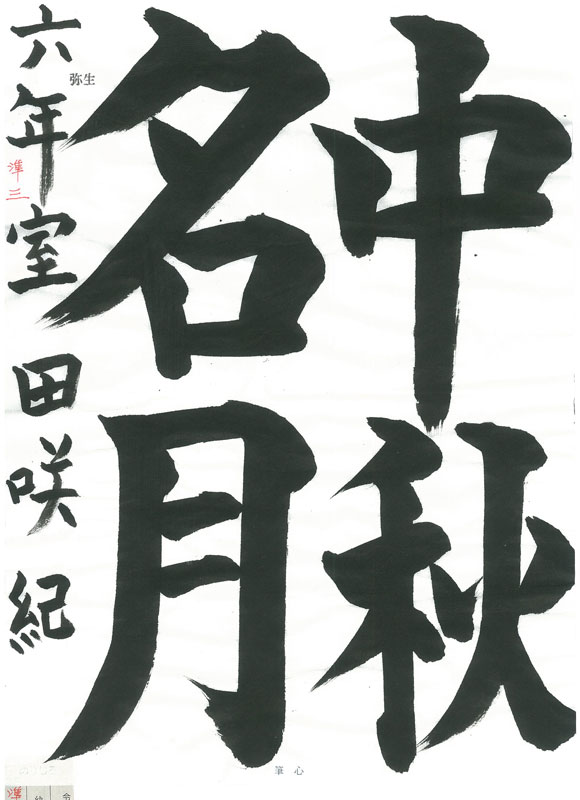 中秋
名月
弥生
六年室田咲紀
準三
筆心
準